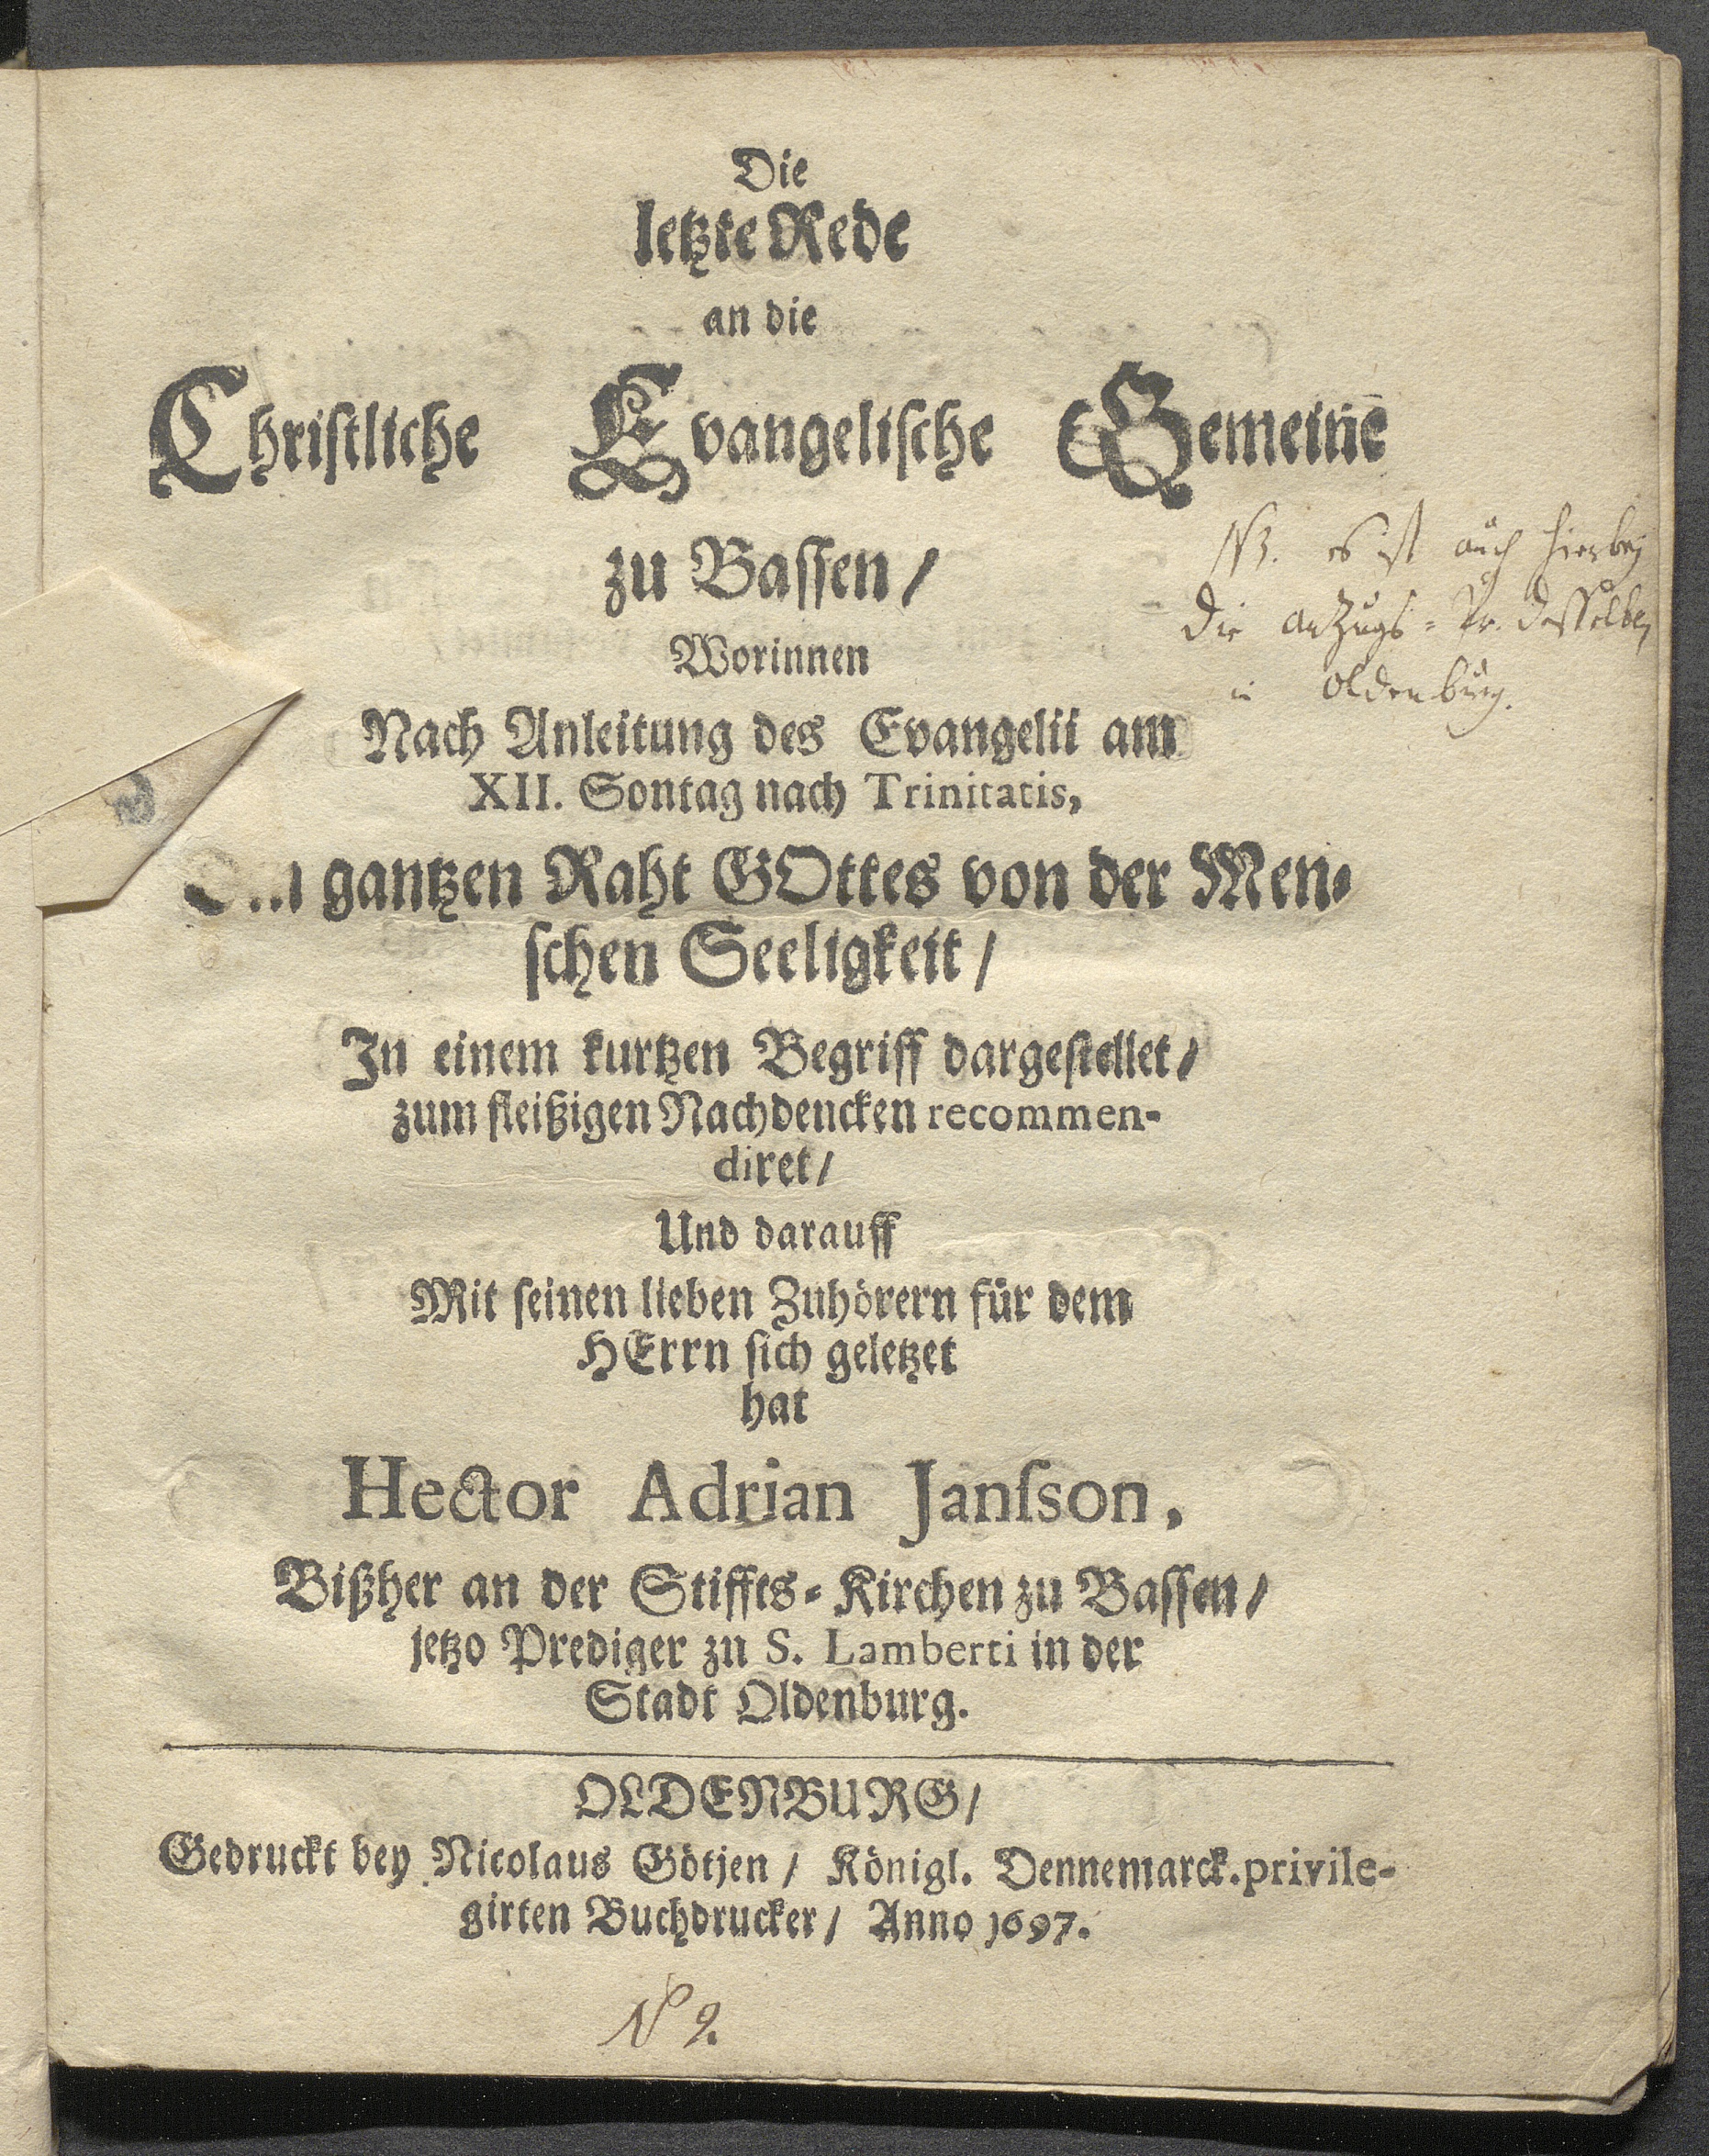 Die
letzte Rede
an die
Christliche Evangelische Gemeine̅
zu Bassen /
Worinnen
Nach Anleitung des Evangelii am
XII. Sontag nach Trinitatis,
gantzen Raht GOttes von der Men-
schen Seeligkeit /
In einem kurtzen Begriff dargestellet /
zum fleißigen Nachdencken recommen-
diret /
Und darauff
Mit seinen lieben Zuhörern für dem
HErrn sich geletzet
hat
Hector Adrian Janſson,
Bißher an der Stiffts-Kirchen zu Bassen /
jetzo Prediger zu S. Lamberti in der
Stadt Oldenburg.
OLDENBURG /
Gedruckt bey Nicolaus Götjen / Königl. Dennemarck. privile-
girten Buchdrucker / Anno 1697.
NB. es ist auch hierbey
die anZugs-Pr. desselben
in Oldenburg.
N 9.